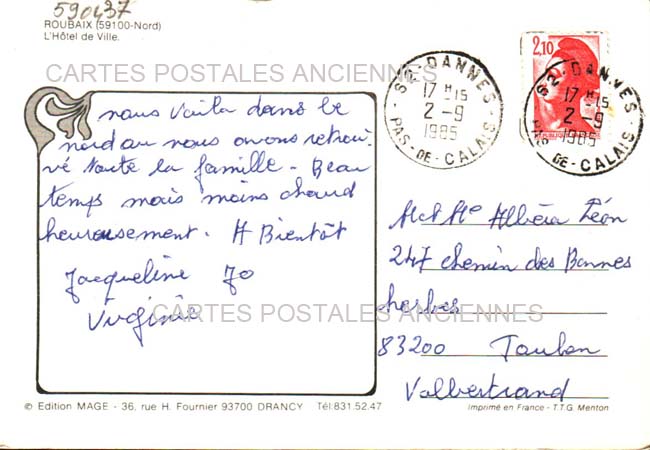 590437
ROUBAIX (59100-Nord)
L'Hôtel de Ville.
CARTES POSTALES ANCIENNES
nous voila dans le
nord ou nous avons retrou-
vé toute la famille - Beau
temps mais moins chaud
heureusement. A Bientôt
Jacqueline Jo
Virginie
62 - DANNES
17 H 15
2 - 9
1985
PAS-DE-CALAIS
2,10
62 - DANNES
17 H 15
2 - 9
1985
PAS-DE-CALAIS
Mr et Me Léon
247 chemin des Bonnes
herbes
83200 Toulon
Valbertrand
CARTES POSTALES ANCIENNES
© Edition MAGE - 36, rue H. Fournier 93700 DRANCY Tél:831.52.47
Imprimé en France - T.T.G. Menton